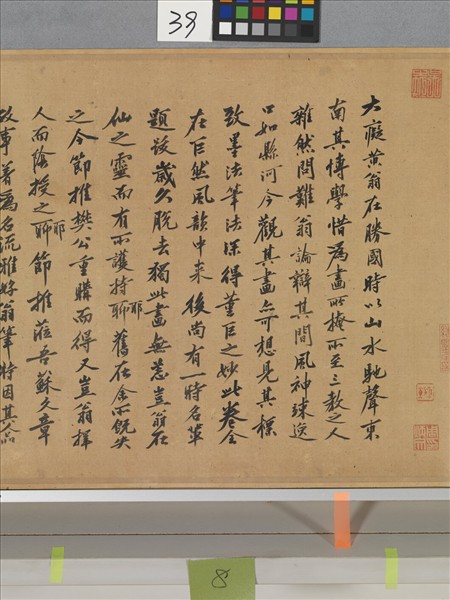 38
大癡黄翁在勝國時以山水馳聲東
南其博學惜為畫所掩所至三教之人
雜然問難翁論辯其間風神竦逸
口如縣河今觀其畫亦可想見其標
致墨法筆法深得董巨之妙此卷全
在巨然風韻中来後尚有一時名輩
題跋歲久脫去獨此畫無恙豈翁在
仙之靈而有所護持聊耶舊在余所既失
之今節推樊公重購而得又豈翁擇
人而陰授之聊耶節推蒞吾蘇文章
政事著為名流雅好翁筆特因其人品
8